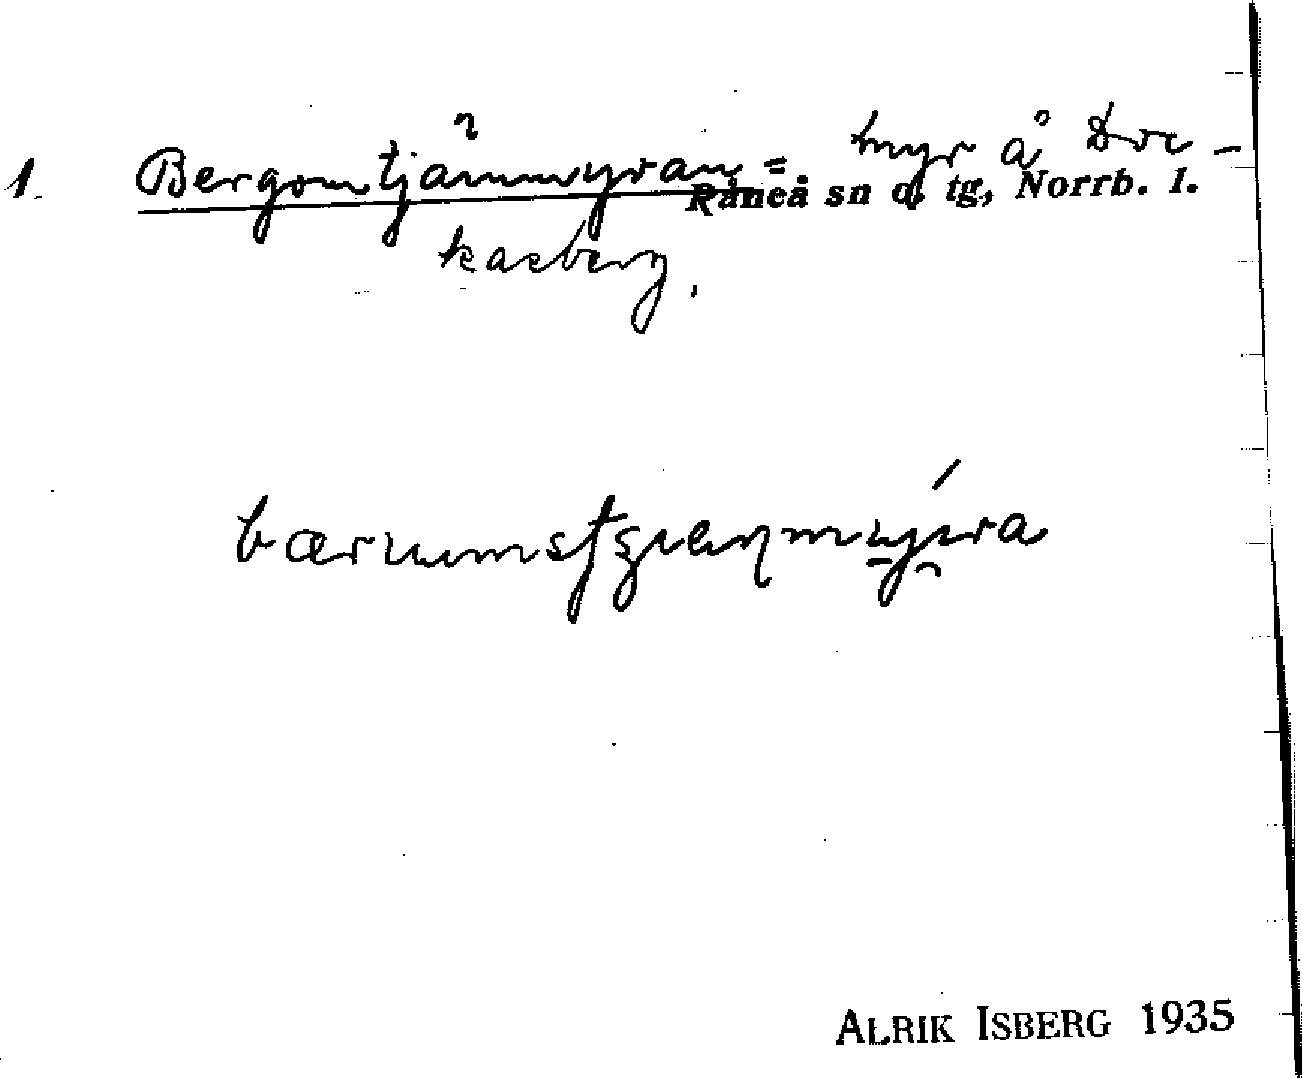 1. Bergomtjärnmyran = myr å Dre-
Råneå sn o. tg, Norrb. l.
kasberg.
ALRIK ISBERG 1935